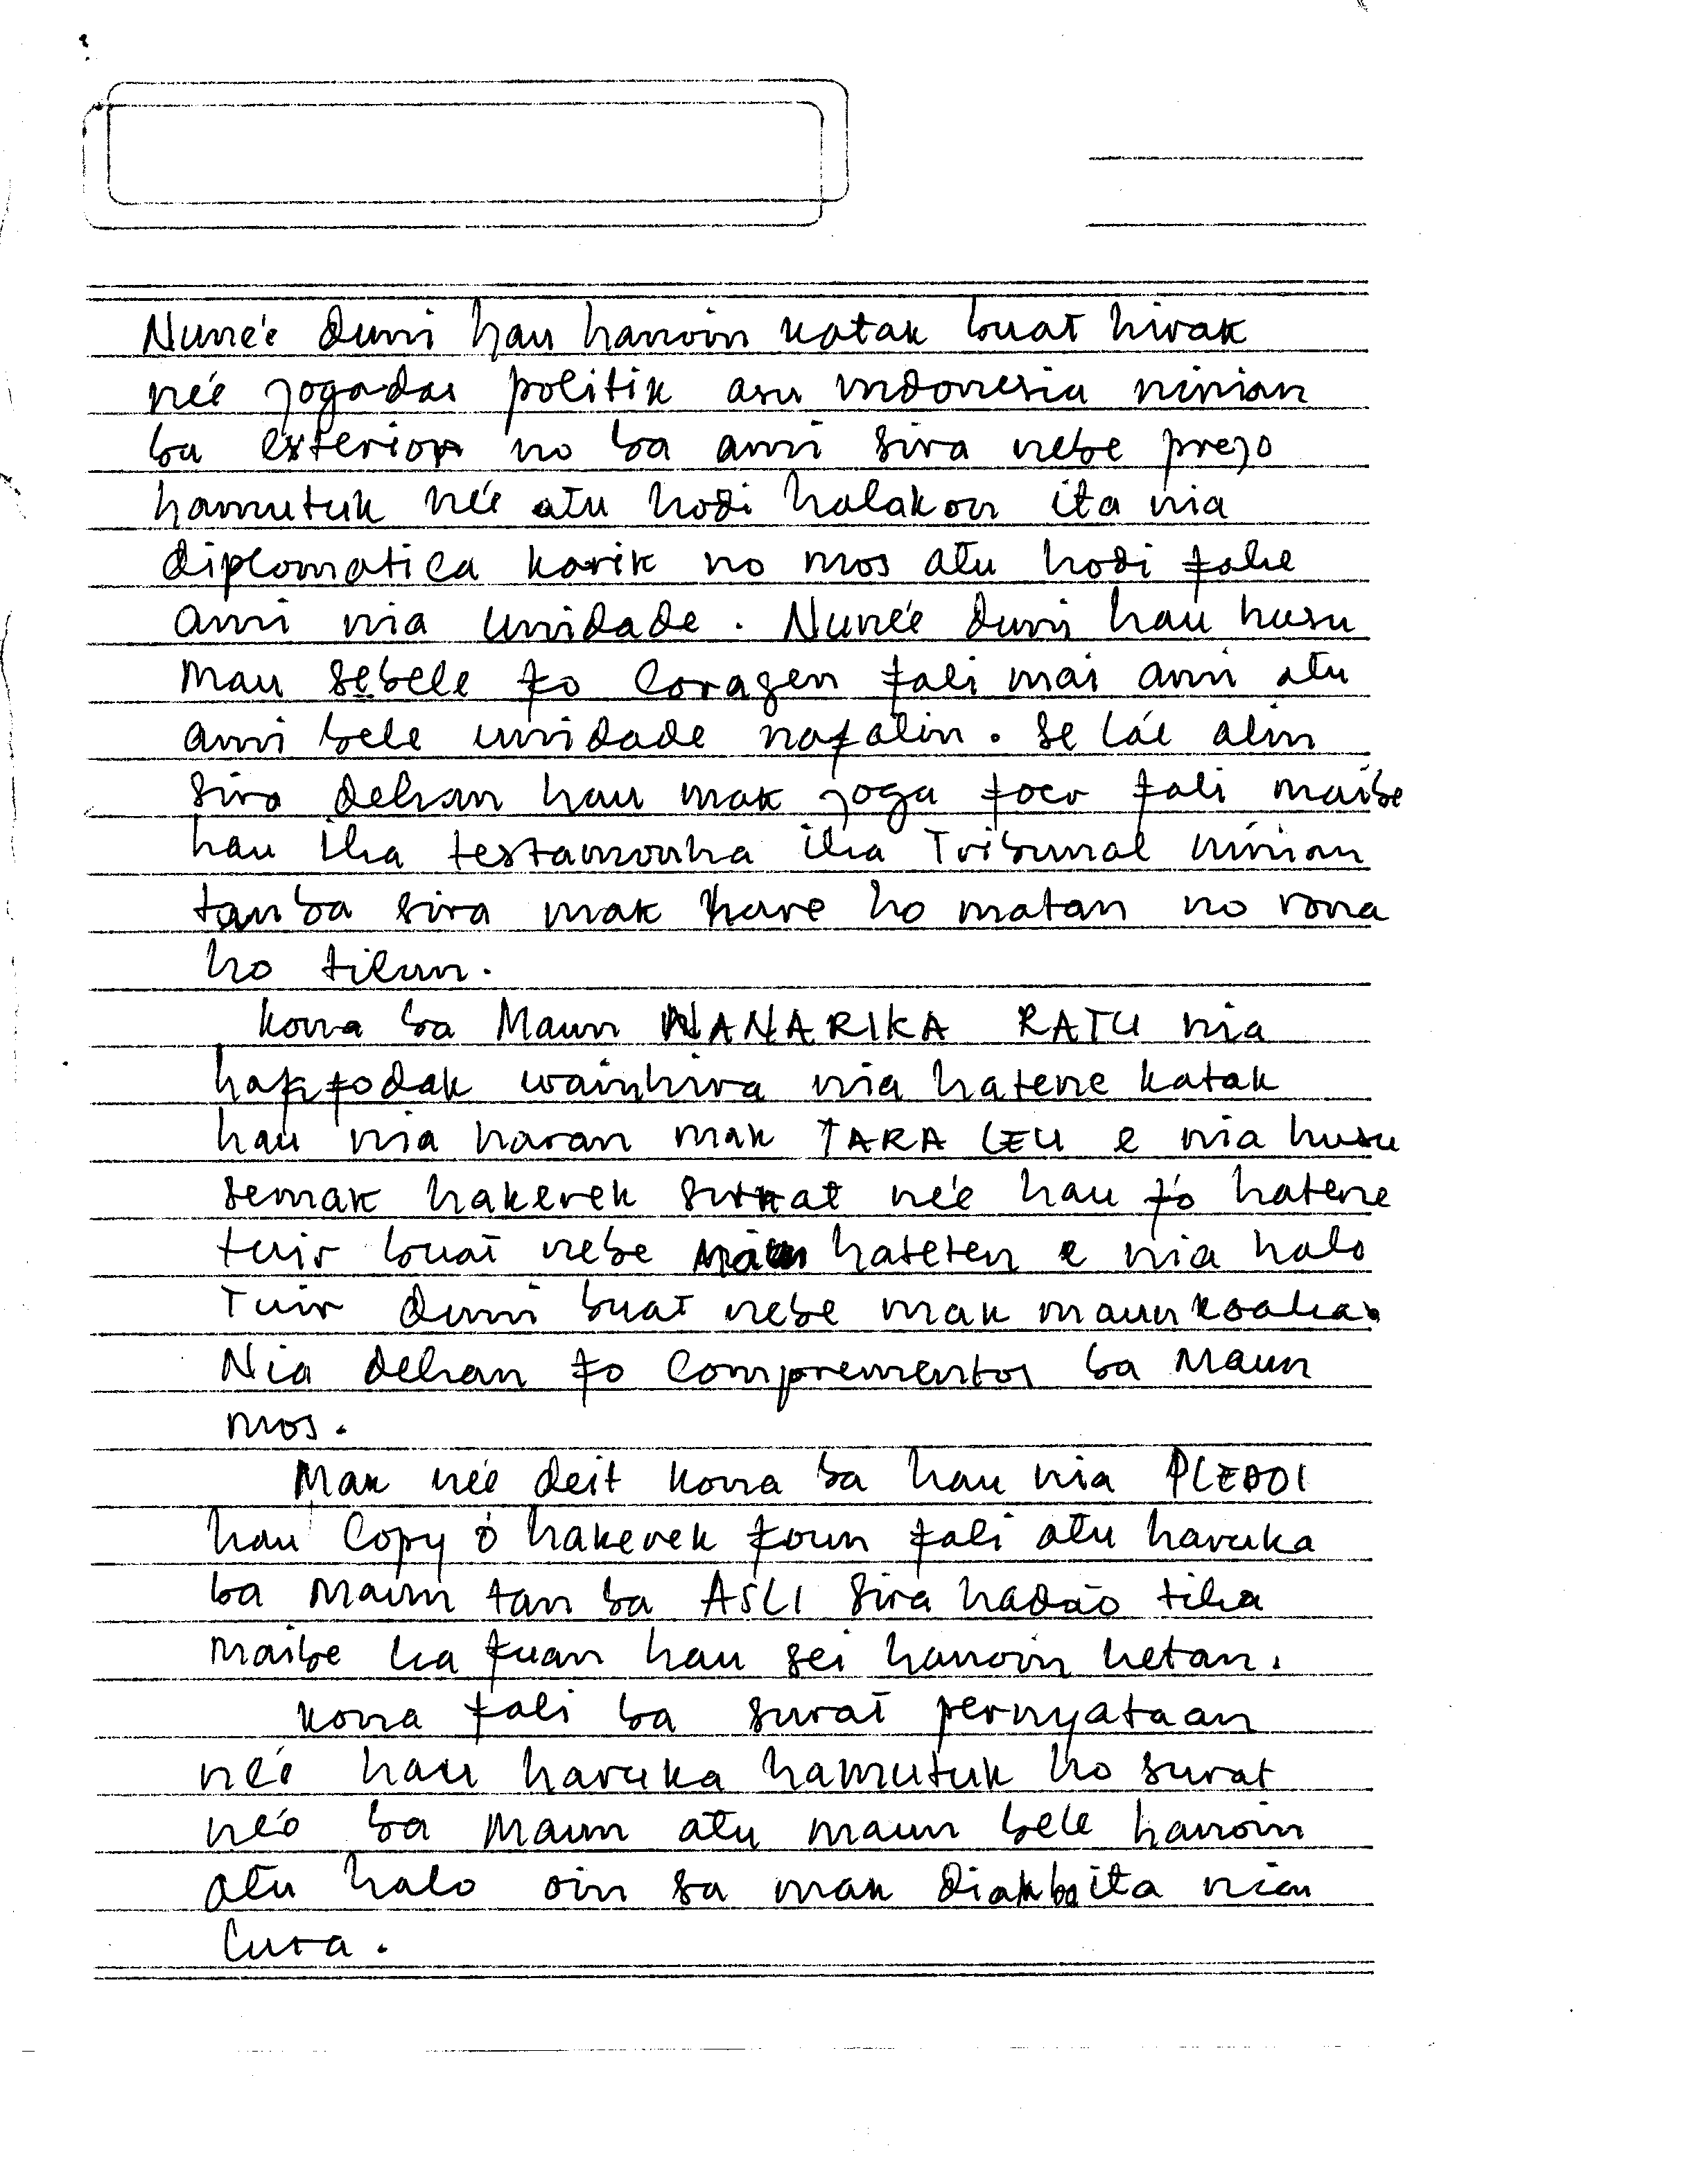 Nune'e duni hau hanoin katak buat hirak
ne'e jogadas politik asu indonesia ninian
ba exterior no ba ami sira nebe prezo
hamutuk ne'e atu hodi halakon ita nia
diplomatica karik no mos atu hodi fahe
ami nia unidade. Nune'e duni hau husu
mau sebele fo coragen fali mai ami atu
ami bele unidade nafalin. Se lá'e alin
sira dehan hau mak joga foer fali maibe
hau iha testamonha iha Tribunal ninian
tanba sira mak hare ho matan no rona
ho tilun.
Kona ba Maun WANARIKA RATU nia
hakfodak wainhira nia hatene katak
hau nia naran mak TARA LEU e nia husu
semak hakerek surat ne'e hau fó hatene
tuir buat nebe hateten e nia halo
Tuir duni buat nebe mak maun koalia.
Nia dehan fo comprementos ba Maun
mos.
Mak ne'e deit kona ba hau nia PLEDOI
hau Copy ó hakerek foun fali atu haruka
ba Maun tan ba ASLI sira hadáo tiha
maibe lia fuan hau sei hanoin hetan.
Kona fali ba surat pernyataan
ne'e hau haruka hamutuk ho surat
ne'e ba Maun atu maun bele hanoin
atu halo oin sa mak diak ba ita nian
Luta.